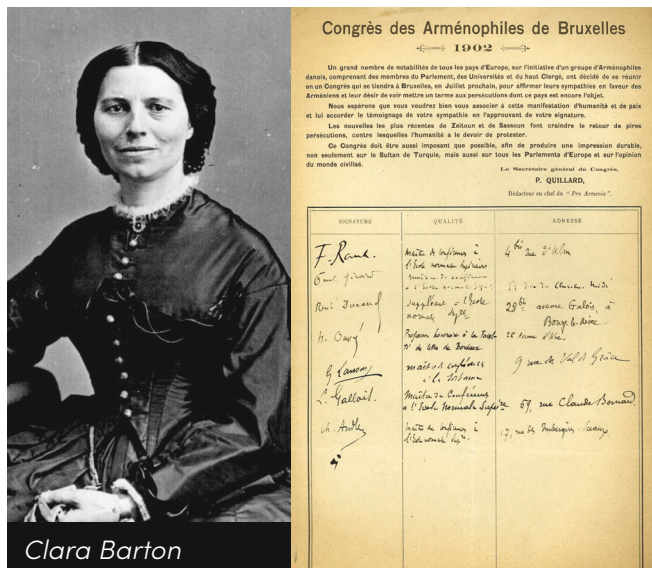 Congrès des Arménophiles de Bruxelles
1902
Un grand nombre de notabilités de tous les pays d'Europe, sur l'initiative d'un groupe d'Arménophiles
danois, comprenant des membres du Parlement, des Universités et du haut Clergé, ont décidé de se réunir
en un Congrès qui se tiendra à Bruxelles, en Juillet prochain, pour affirmer leurs sympathies en faveur des
Arméniens et leur désir de voir mettre un terme aux persécutions dont ce pays est encore l'objet.
Nous espérons que vous voudrez bien vous associer à cette manifestation d'humanité et de paix
et lui accorder le témoignage de votre sympathie en l'approuvant de votre signature.
Les nouvelles les plus récentes de Zeitoun et de Sassoun font craindre le retour de pires
persécutions, contre lesquelles l'humanité a le devoir de protester.
Ce Congrès doit être aussi imposant que possible, afin de produire une impression durable,
non seulement sur le Sultan de Turquie, mais aussi sur tous les Parlements d'Europe et sur l'opinion
du monde civilisé.
Le Secrétaire général du Congrès,
P. QUILLARD,
Rédacteur en chef du "Pro Armenia".
SIGNATURE QUALITÉ ADRESSE
4 bis rue d'Ulm
Paul Girard
28 bis avenue Galois, à
Bourg-la-Reine
G Lanson maître de conférences 9 rue du Val de Grâce
à la Sorbonne
L. Gallois. Maître de Conférences
à l'Ecole Normale Supérieure 59, rue Claude Bernard
Ch. Andler
Clara Barton